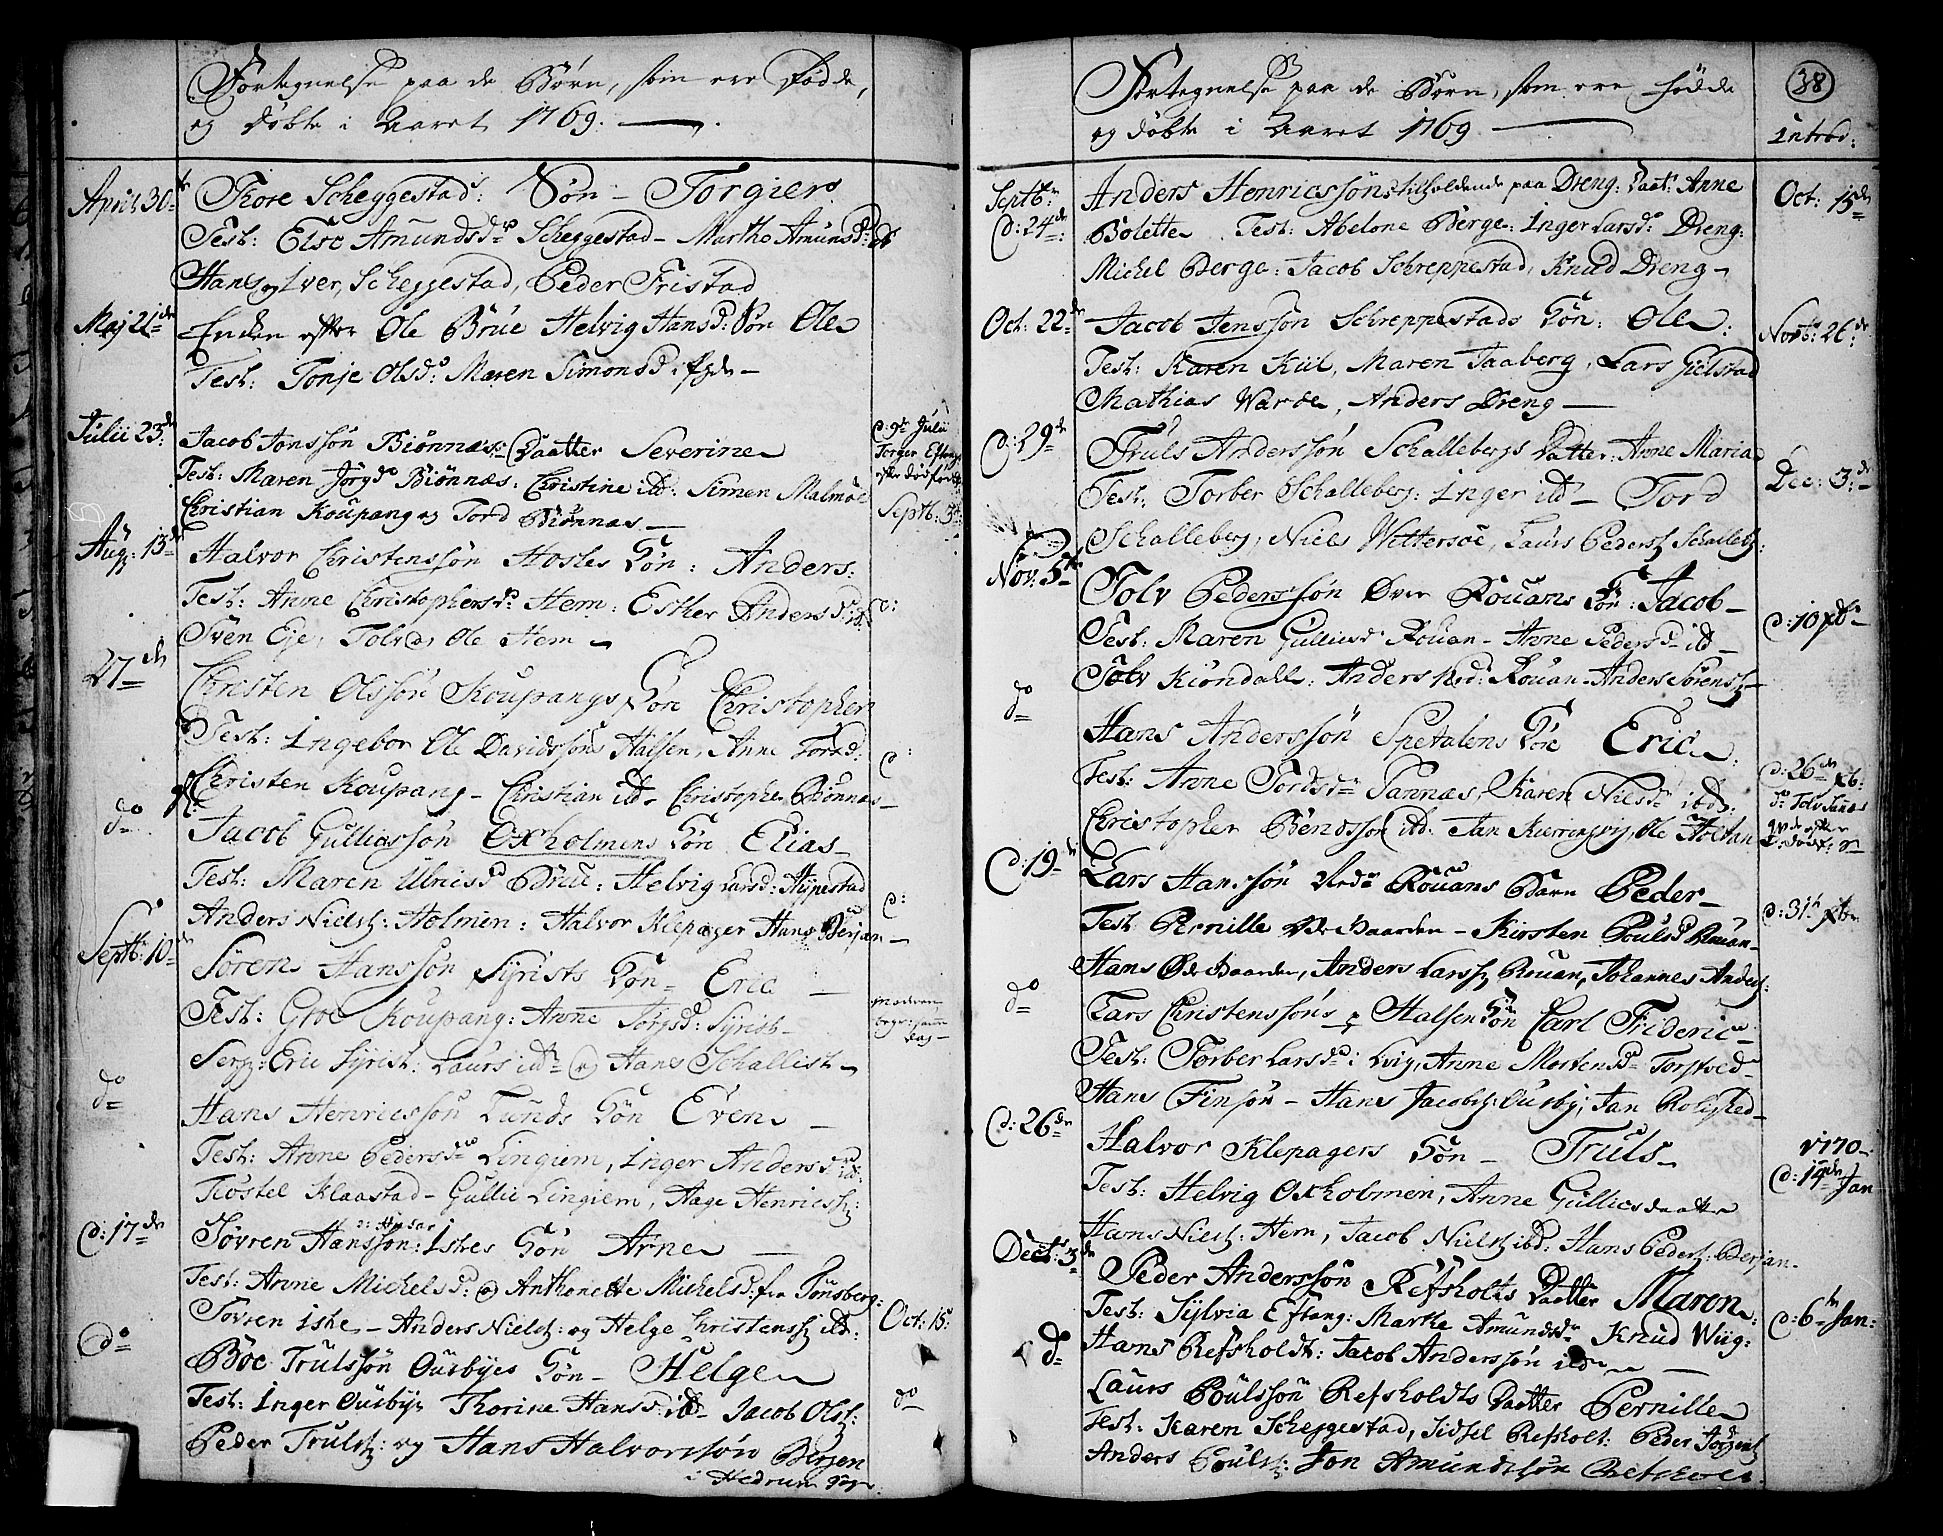 Fortegnelse paa de Børn, som ere Fødde,
og døbte i Aaret 1769.
April 30te Thore Scheggestad: Søn - Torgier.
Test: Else Amundsdr Scheggestad - Marthe Amunsdr
Hans og Iver, Scheggestad, Peder Fristad
Maj 21de Enken efter Ole Brue Helvig Hansd: Søn Ole
Test: Tonje Olsdr: Maren Simonsd:
Julii 23de Jacob Jonssøn Biønnæs: Daatter Severine
Test: Maren Jørgd Biønnæs: Christine ibd: Simen Malmøe
Christian Koupang og Tord Biønnæs
d: 9de Julii
Torger Eftang
Septb: 3de
Aug: 13de Halvor Christenssøn Hostes Søn: Anders:
Test: Anne Christophersdr Hem: Esther Andersd:
Sven Eje, Tolv, Ole Hem
27de Christen Olssøn Koupangs Søn Christopher
Test: Ingebor Ole Davidssøns Halsen, Anne Tordsd:
Christen Koupang - Christian ibd - Christopher Biønnæs
do Jacob Gulliessøn Oxholmens Søn Elias
Test: Maren Ulricsd Brue: Helvig Larsd: Hypestad
Anders Nielss: Holmen: Halvor Klepager Hans Berjan
Septb: 10de Søren Hanssøn Syrists Søn - Eric
Test: Groe Koupang: Anne Jørgsd: Syrist
Serg: Eric Syrist: Laurs ibd og Hans Schallist
do Hans Henricssøn Lunds Søn Even
Test: Anne Pedersdr Lingiem, Inger Andersd: ibd:
Trøstel Klaastad - Gullic Lingiem, Aage Henricss:
d: 17de Søvren Hanssøn: Istres Søn Arne
Test: Anne Michelsd: og Anthonette Michelsd: fra Tønsberg:
Søvren Iske - Anders Nielss: og Helge Christenss ibd:
Oct: 15:
do Boe Trulssøn Ousbyes Søn - Helge
Test: Inger Ousbye Thorine Hansd: ibd - Jacob Olss:
do
Peder Trulss: og Hans Halvorssøn Berjen
i Hedrum
38
Fortegnelse paa de Børn, som ere Fødde
og døbte i Aaret 1769
Introd:
Septbr d: 24de Anders Henricssøns tilholdende paa Dreng: Daat: Anne
Oct: 15de
Bolette Test: Abelone Berge: Inger Larsd: Dreng:
Michel Berge: Jacob Schreppestad, Knud Dreng
Oct: 22de Jacob Jenssøn Schreppestads Søn: Ole:
Novb: 26de
Test: Karen Kiil, Maren Taaberg, Lars Gielstad
Mathias Warde, Anders Dreng
d: 29de Truls Anderssøn Schallebergs Datter: Anne Maria
Dec: 3de
Test: Torber Schalleberg: Inger ibd - Tord
Schalleberg, Niels Wittersøe, Laurs Peders Schalleb:
Nov: 5te Tolv Pederssøn Øver Rouans Søn: Jacob
d: 10 xbr
Test: Maren Gulliesd Rouan - Anne Pedersdr ibd
Tolv Kiøndahl: Anders Ned: Rouan - Anders Sørenss
do Hans Anderssøn Spetalens Søn Eric
Test: Anne Tordsdr Sannæs, Karen Nielsdr ibd:
d: 26de xb:
Christopher Bendssøn ibd: Jan Kierringvig, Ole Holtan
d: 19de Lars Hanssøn Nedr Rouans Barn Peder
Test Pernille Gaarden - Kirsten Poulsd Rouan
d: 31te xbr
Hans Gaarden, Anders Larss Rouan, Johannes Anders:
do Lars Christenssøns p Halsen Søn Carl Frideric
Test: Torber Larsdr: Lvig, Anne Mortensdr Torstved
Hans Finsøn - Hans Jacobs: Ousby, Jan Rolighed
d: 26de Halvor Klepagers Søn - Truls
1770
d: 14de Jan
Test: Helvig Oxholmen, Anne Gulliesdaatter
Hans Nielss: Hem, Jacob Nielss ibd: Hans Peders: Berjan
Decb: 3de Peder Anderssøn Refsholts Daatter Maren
Test: Sylvia Eftang: Marthe Amundsdr Knud Wiig:
d: 6te Jan:
Hans Refsholdt: Jacob Anderssøn ibd
do Laurs Poulssøn Refsholdts Daatter Pernille
Test: Karen Scheggestad, Sidsel Refsholt: Peder Jørgens
Anders Pouls: Jon Amundssøn